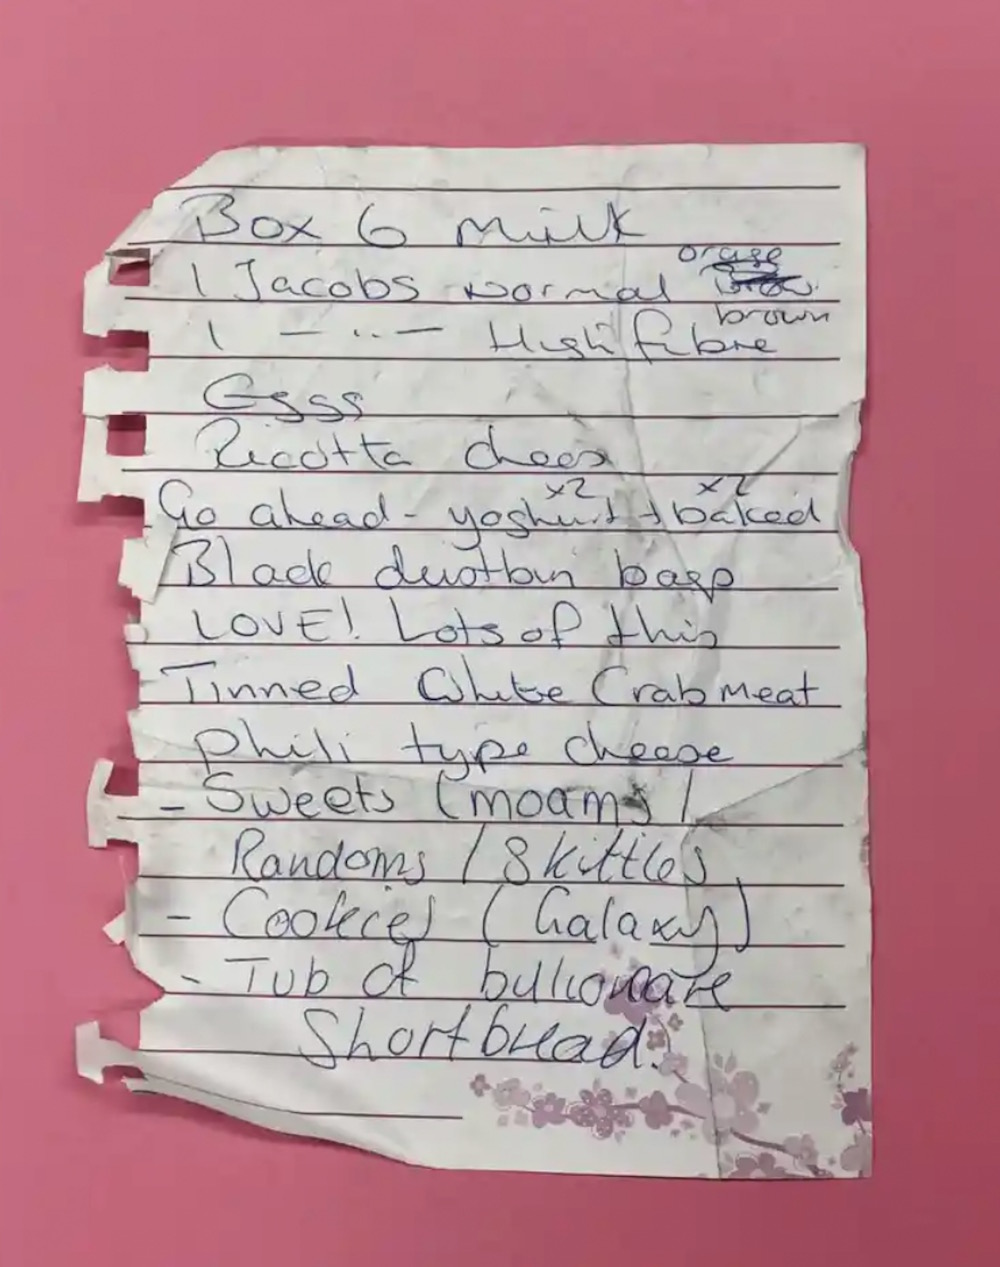 Box 6 milk
1 Jacobs normal orage
brown
1 — ·· — High fibre
Eggs
Ricotta chees
Go ahead - yoghurt x2 + baked x2
Black dustbin bags
LOVE! Lots of this
Tinned White Crab meat
Phili type cheese
- Sweets (moams) /
Randoms / Skittles
- Cookies (Galaxy)
- Tub of billionare
Shortbread.